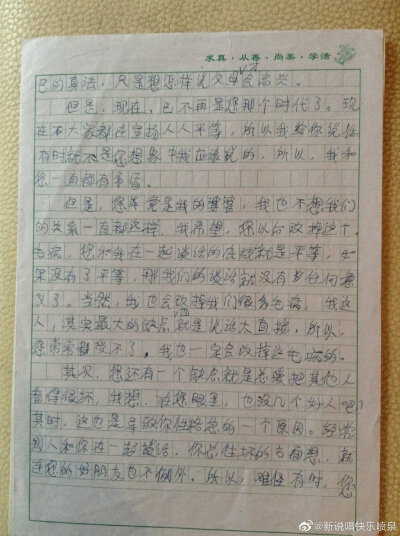 求真·从善·尚美·学活
己的真法,只是想怎样说父母会高兴。
但是,现在,已不再是您那个时代了。现
在大家都在宣扬人人平等,所以我给你说话
有时就不是您想象中我应该说的,所以,我和
您一直都有矛盾。
但是,您毕竟是我的婆婆,我也不想我们
的关系一直都这样,我希望,您以后改掉这个
毛病,您和我在一起谈话的依据就是平等,如
果没有了平等,那我们的谈话就没有任何意
义了。当然,我也会改掉我们很多毛病,我这
人,其实最大的缺点就是说话太直接。所以,
您常常接受不了。我也一定会改掉这毛病的。
其次,您还有一个缺点就是总爱把其他人
看得很坏,我想,在您眼里,也没几个好人吧?
其时,这也是导致你性格急的一个原因。经常
别人和你在一起谈话,你总往坏的方面想,就
连您的好朋友也不例外。所以,难怪有时,您
@新说唱快乐喷泉